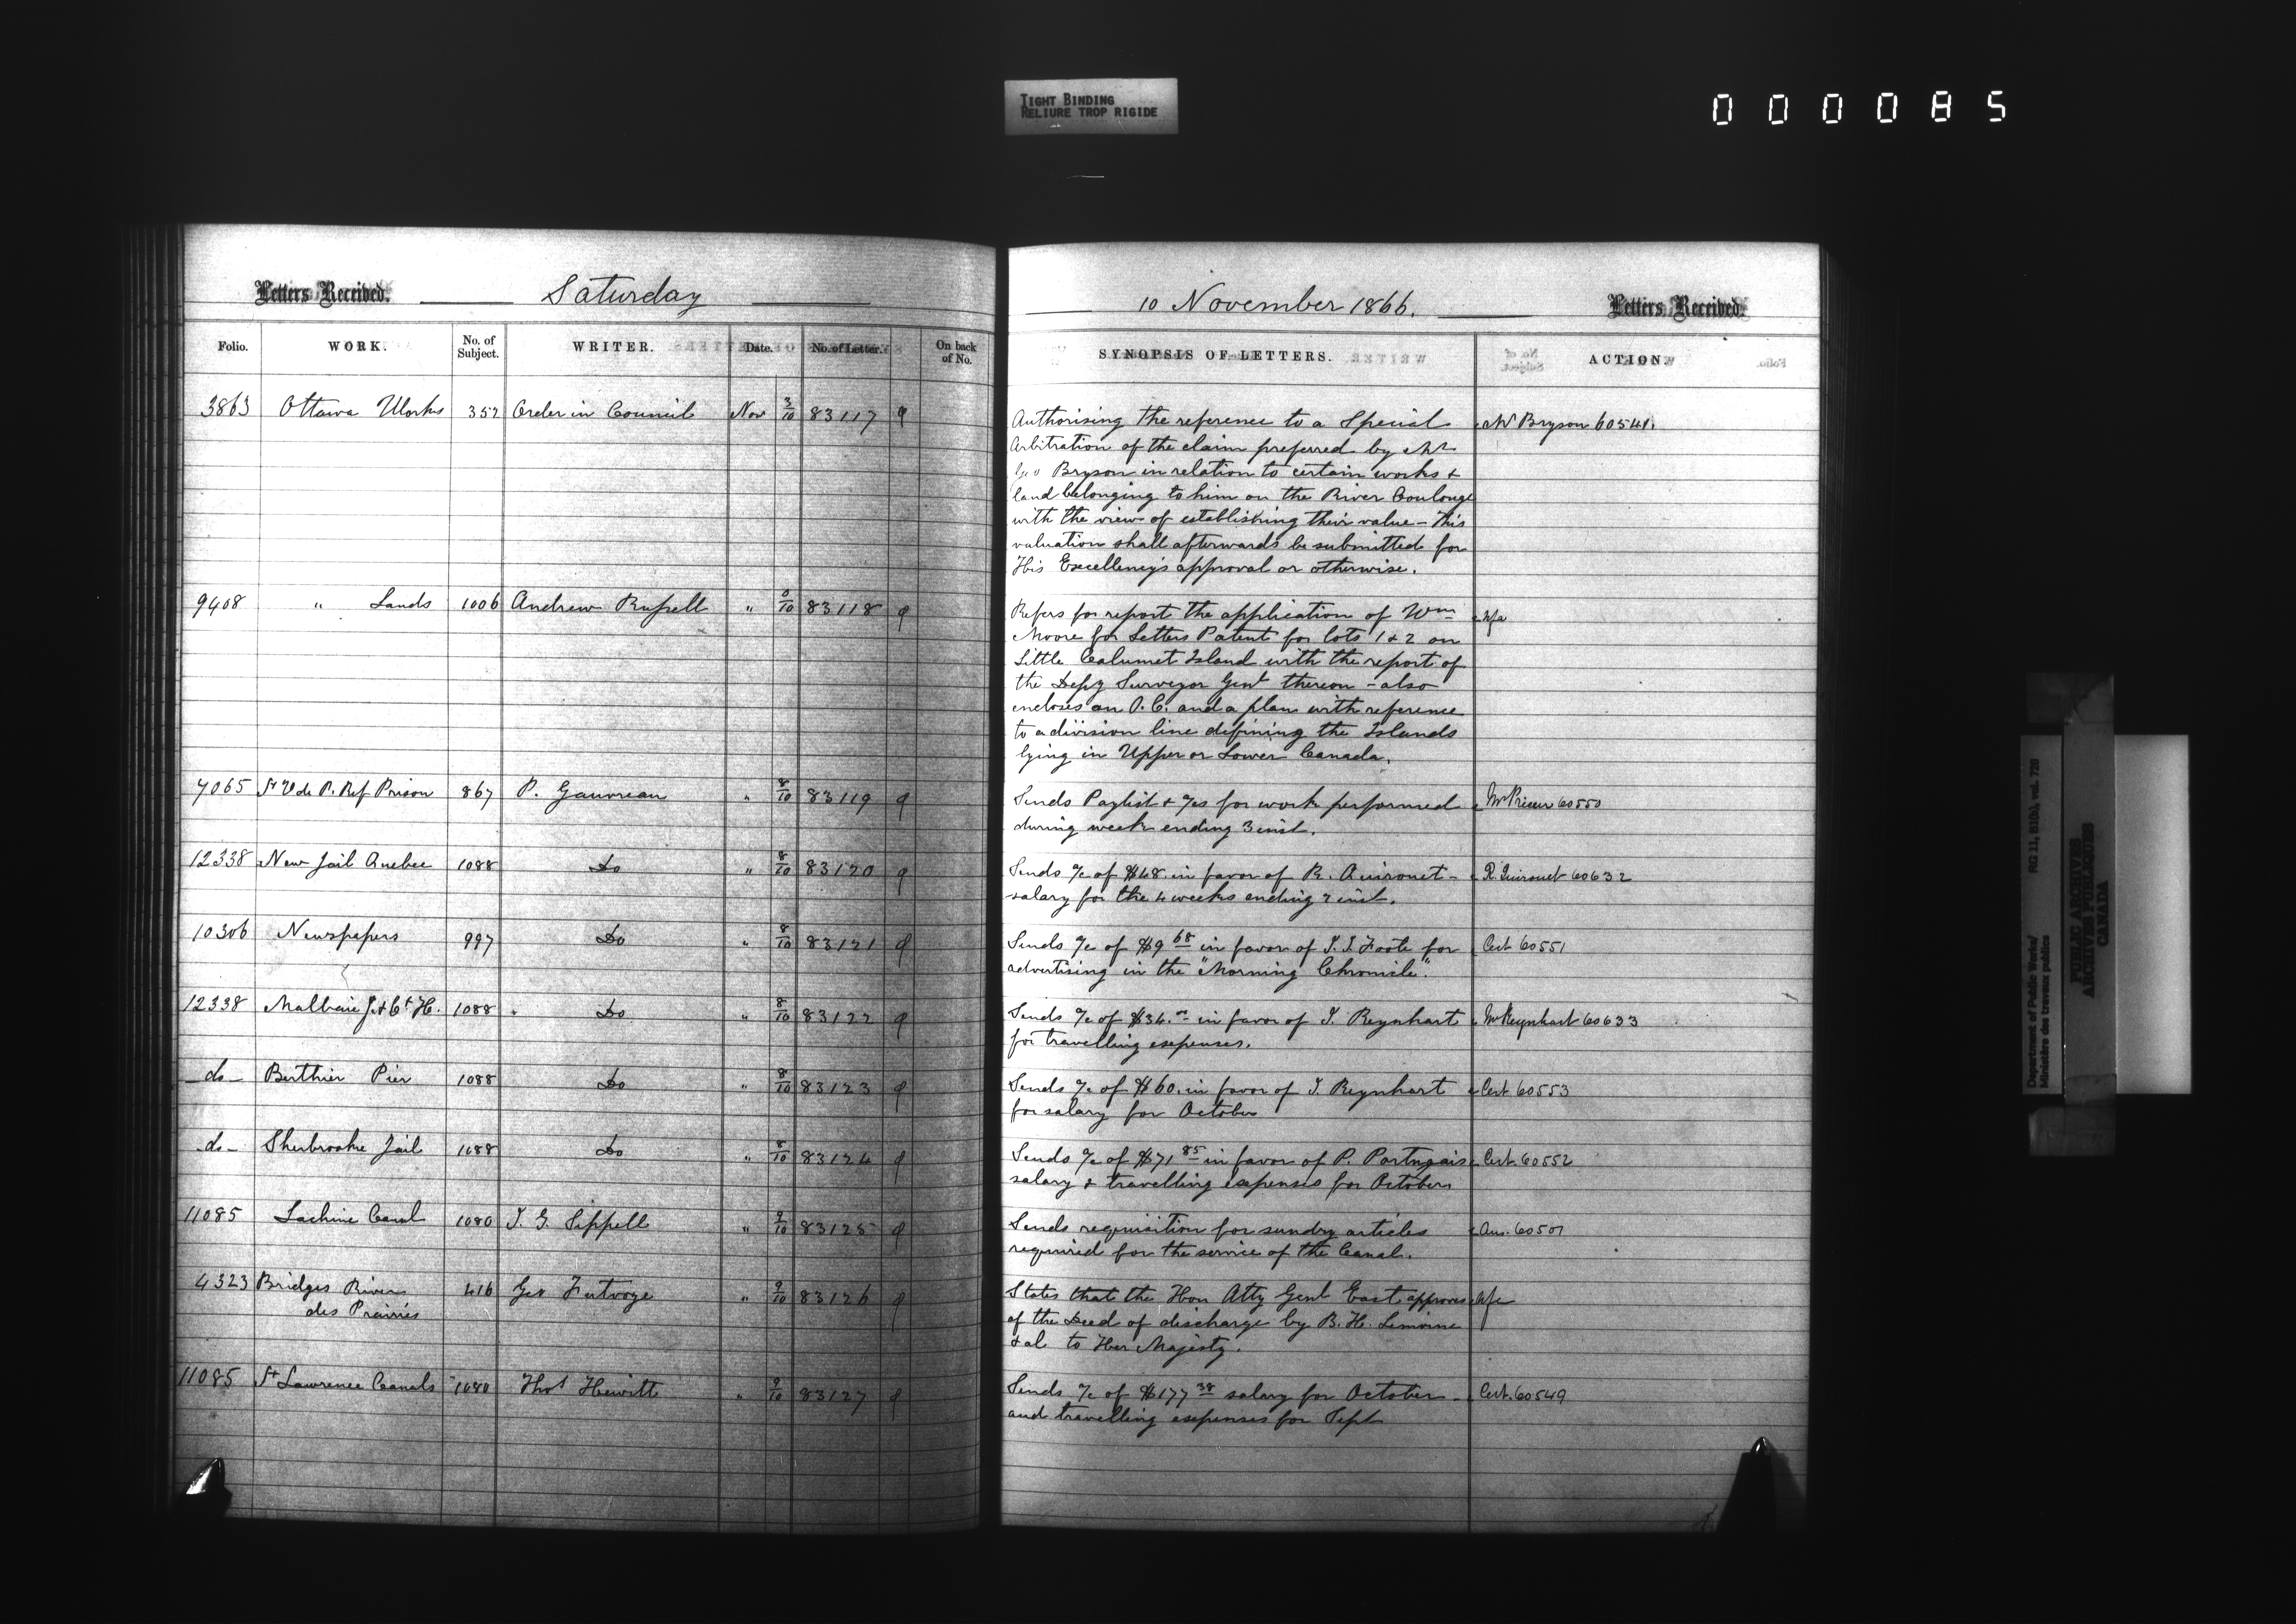 TIGHT BINDING
RELIURE TROP RIGIDE
000085
Letters Received. Saturday
Folio. WORK. No. of Subject. WRITER. Date. No. of Letter. On back of No.
3863 Ottawa Works 357 Order in Council Nov 3/10 83117
9408 " Lands 1006 Andrew Russell " 83118
7065 St V de P. Ref Prison 867 P. Gauvreau " 8/10 83119
12338 New Jail Quebec 1088 Do " 8/10 83120
10306 Newspapers 997 Do " 8/10 83121
12338 Malbaie J. & Ct H. 1088 Do " 8/10 83122
-do- Berthier Pier 1088 Do " 8/10 83123
-do- Sherbrooke Jail 1088 Do " 8/10 83124
11085 Lachine Canal 1080 J. G. Sippell " 9/10 83125
4323 Bridges River 416 Geo Futvoye " 9/10 83126
des Prairies
11085 St Lawrence Canals 1080 Thos Hewitt " 9/10 83127
10 November 1866. Letters Received.
SYNOPSIS OF LETTERS. ACTION.
Authorising the reference to a Special Mr Bryson 60541.
Arbitration of the claim preferred by Mr
Geo Bryson in relation to certain works &
land belonging to him on the River Coulonge
with the view of establishing their value - this
valuation shall afterwards be submitted for
His Excellency's approval or otherwise.
Refers for report the application of Wm Nfa
Moore for Letters Patent for lots 1 & 2 on
Little Calumet Island with the report of
the Depy Surveyor Genl thereon - also
encloses an O.C. and a plan with reference
to a division line defining the Islands
lying in Upper or Lower Canada.
Sends Paylist & a/cs for work performed Mr Prieur 60550
during week ending 3 inst.
Sends a/c of $48. in favor of R. Quironet - R. Quironet 60632
salary for the 4 weeks ending 7 inst.
Sends a/c of $9 68 in favor of J. J. Foote for Cert 60551
advertising in the "Morning Chronicle".
Sends a/c of $34.00 in favor of J. Reynhart Mr Reynhart 60633
for travelling expenses.
Sends a/c of $60. in favor of J. Reynhart Cert 60553
for salary for October
Sends a/c of $71 85 in favor of P. Portugais Cert. 60552
salary & travelling expenses for October
Sends requisition for sundry articles Ans. 60507
required for the service of the Canal.
States that the Hon Atty Genl East approves Nfa
of the Deed of discharge by B. H. Lemoine
& al to Her Majesty.
Sends a/c of $177 38 salary for October - Cert. 60549
and travelling expenses for Sept
Department of Public Works/ RG 11, B1(b), vol. 720
Ministère des travaux publics
PUBLIC ARCHIVES
ARCHIVES PUBLIQUES
CANADA